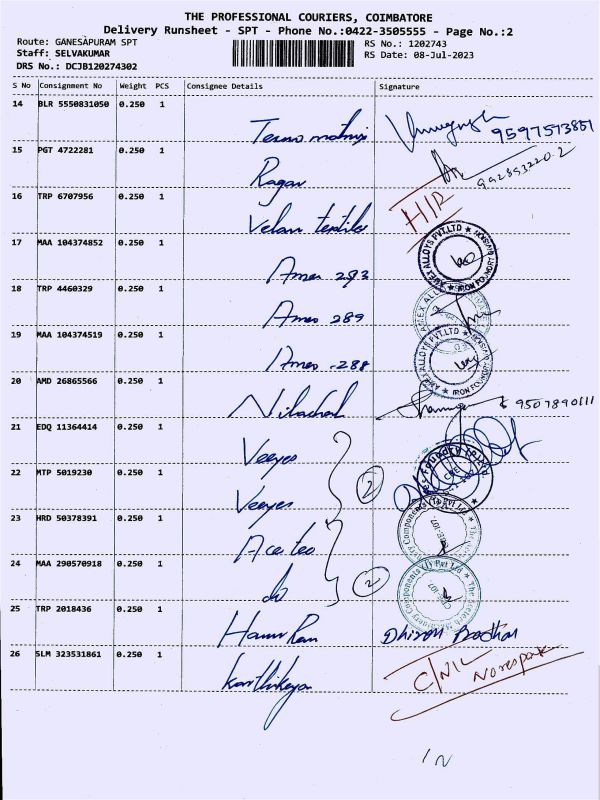 THE PROFESSIONAL COURIERS, COIMBATORE
Delivery Runsheet - SPT - Phone No.:0422-3505555 - Page No.:2
Route: GANESAPURAM SPT
RS No.: 1202743
Staff: SELVAKUMAR
RS Date: 08-Jul-2023
DRS No.: DCJB120274302
S No Consignment No Weight PCS Consignee Details Signature
14 BLR 5550831050 0.250 1
9597573851
15 PGT 4722281 0.250 1 Ragav
16 TRP 6707956 0.250 1 Velan textiles
17 MAA 104374852 0.250 1 Amex 293 AMEX ALLOYS PVT.LTD ★ IRON FOUNDRY
18 TRP 4460329 0.250 1 Amex 289
19 MAA 104374519 0.250 1 Amex 288 AMEX ALLOYS PVT.LTD ★ IRON FOUNDRY
20 AMD 26865566 0.250 1 Nilachal 9507890111
21 EDQ 11364414 0.250 1 Veeyes
22 MTP 5019230 0.250 1 Veeyes 2
23 HRD 50378391 0.250 1
24 MAA 290570918 0.250 1 do 2
25 TRP 2018436 0.250 1
26 SLM 323531861 0.250 1 Karthikeya